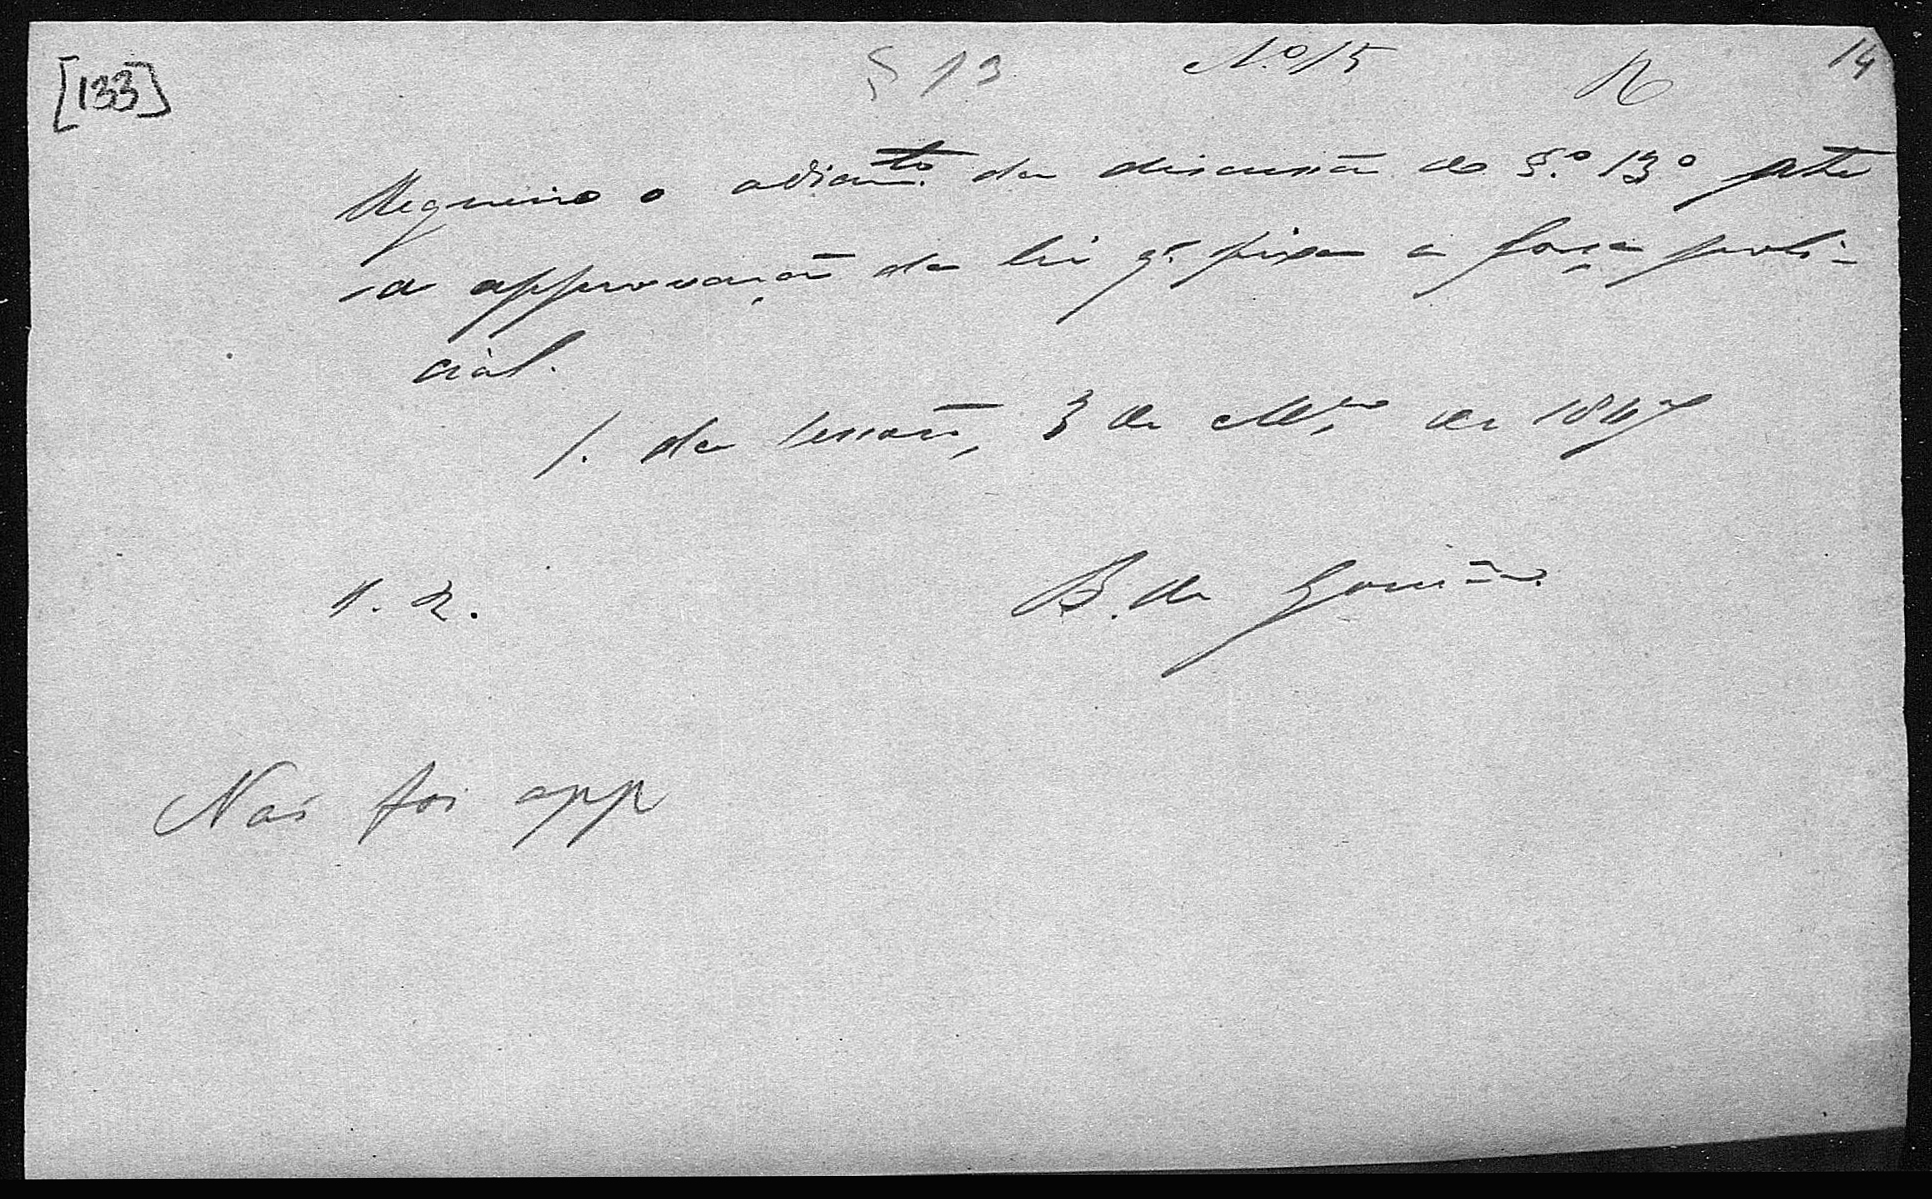 [133] § 13 N.º 15 R 14
Requeiro o adiam.to da discussão do §.º 13º ate
a approvação da lei q' fixa a força poli-
cial.
S. da Sessão, 3 de M.ço de 1847
S. R.
B. de
Não foi app